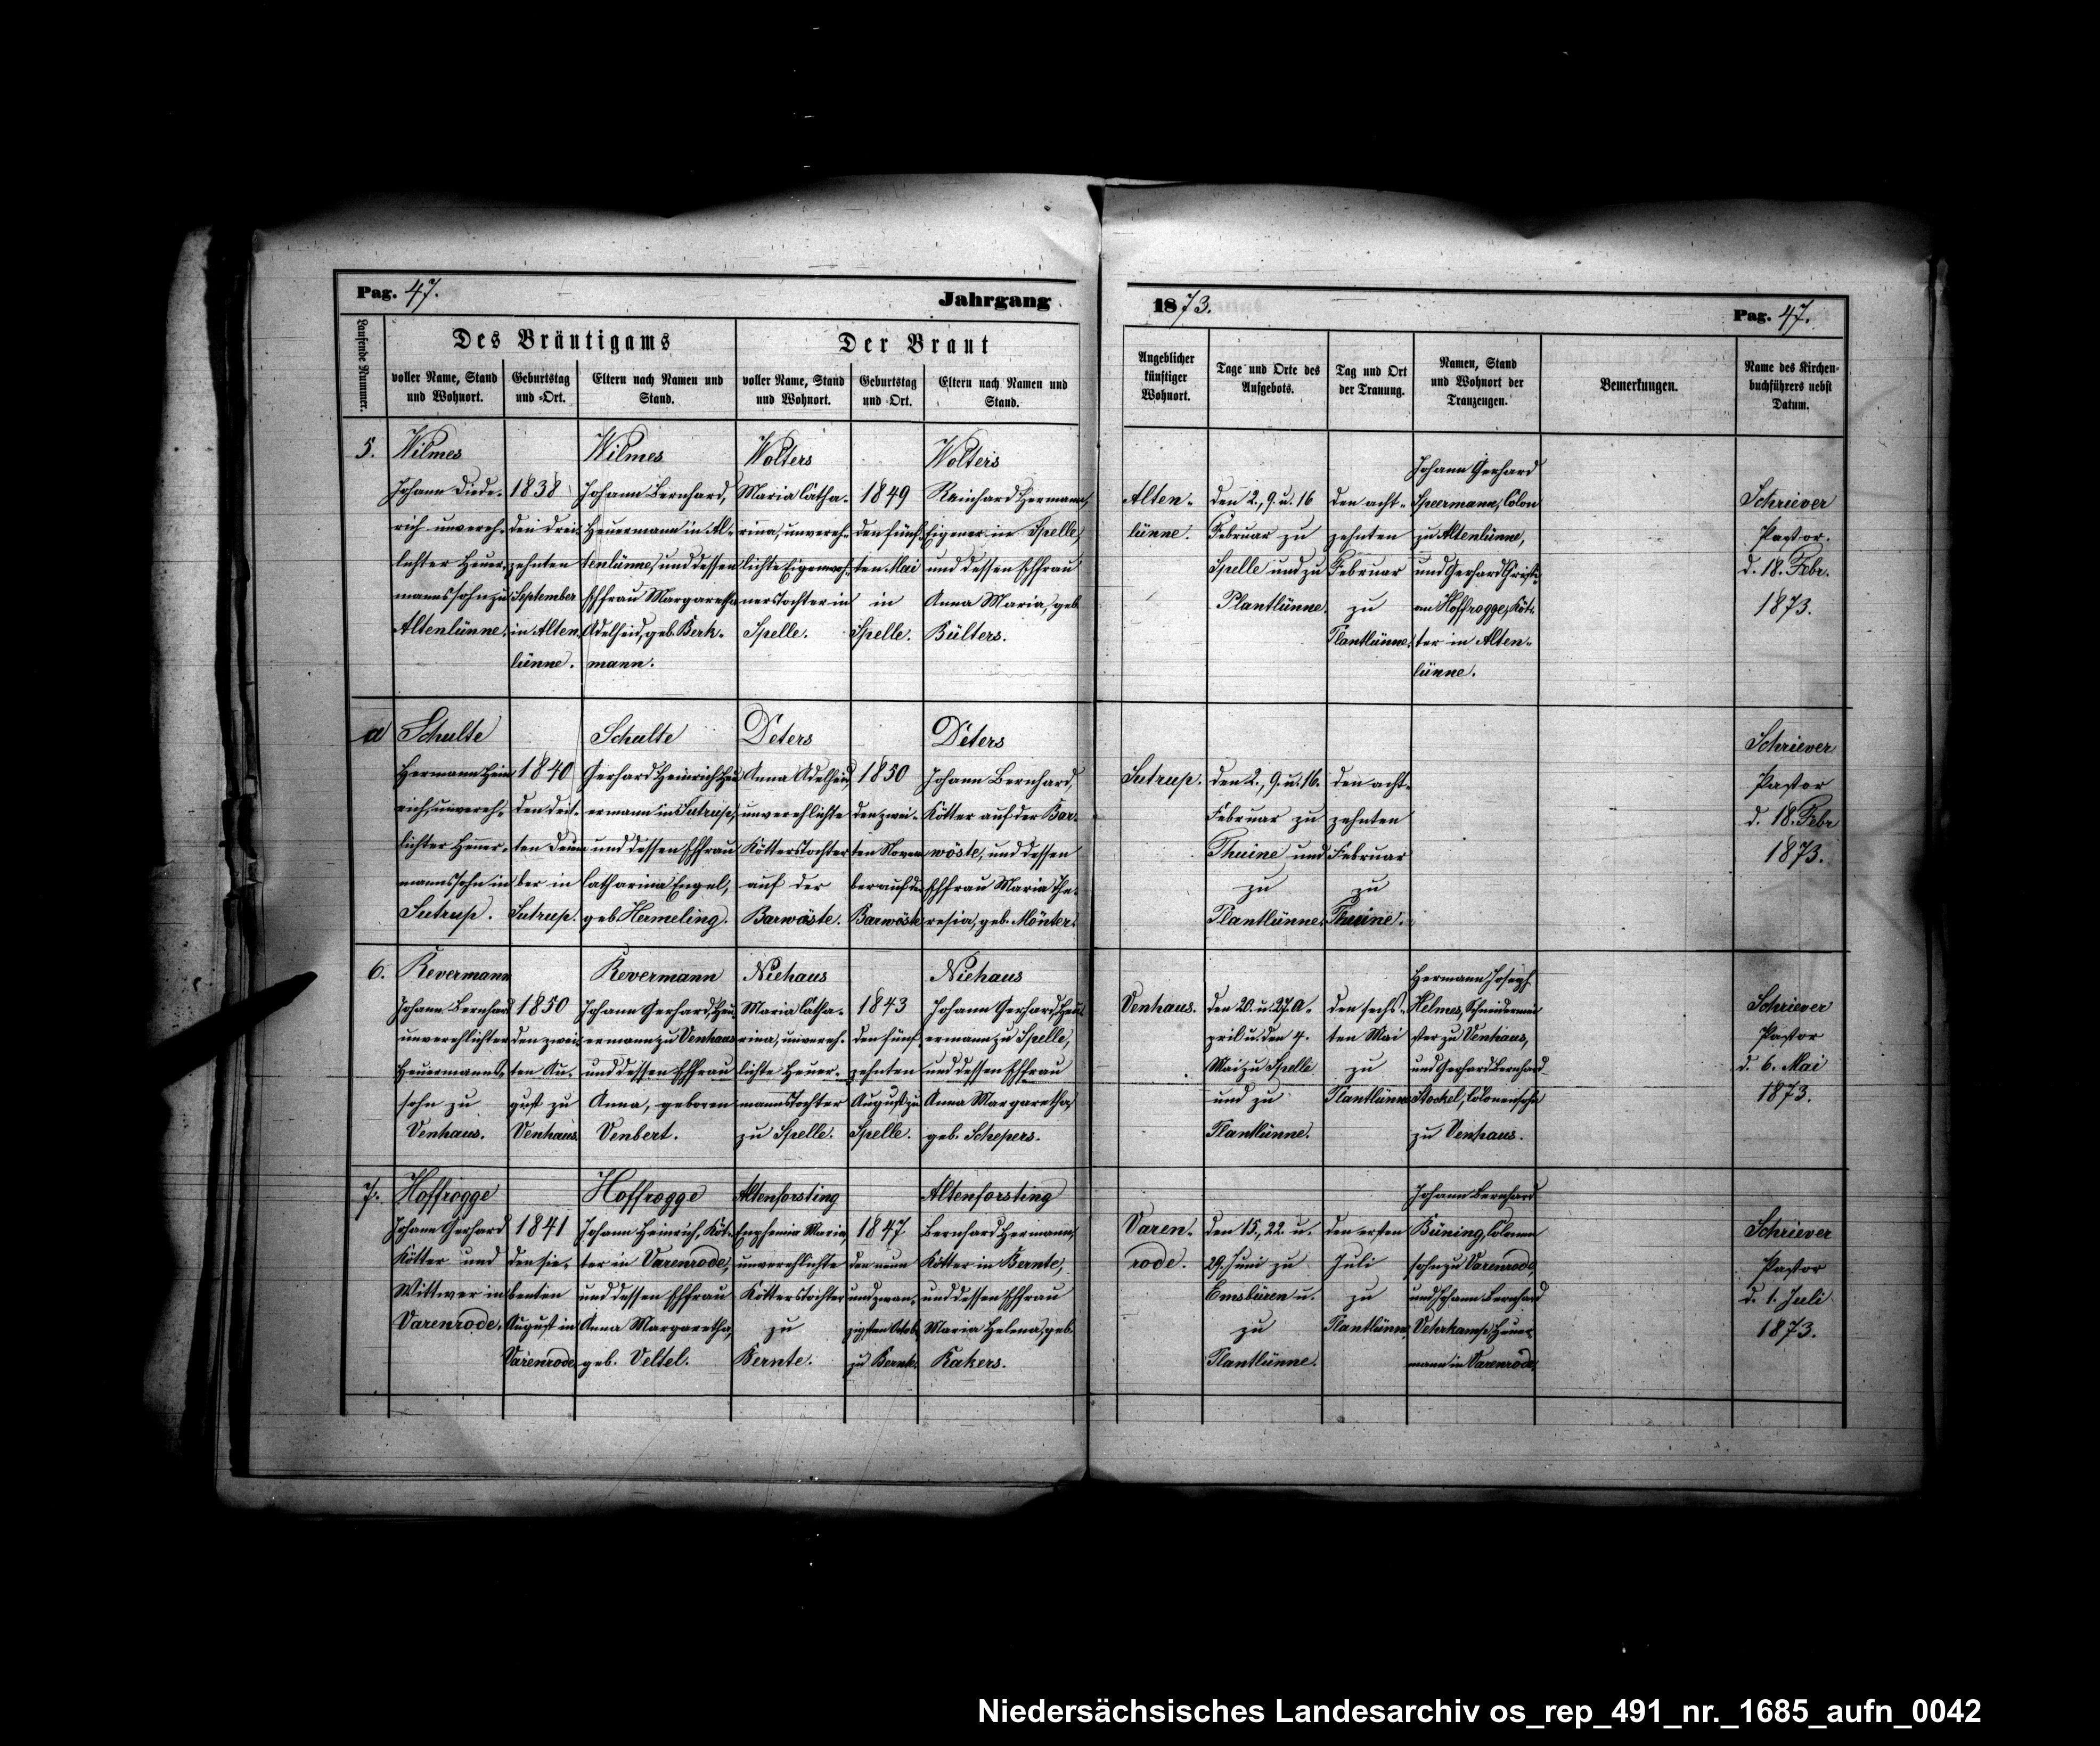 Pag. 47.
Jahrgang
1873.
Pag. 47.
Laufende Nummer.
Des Bräutigams
voller Name, Stand
und Wohnort.
Geburtstag
und Ort.
Eltern nach Namen und
Stand.
Der Braut
voller Name, Stand
und Wohnort.
Geburtstag
und Ort.
Eltern nach Namen und
Stand.
Angeblicher
künftiger
Wohnort.
Tage und Orte des
Aufgebots.
Tag und Ort
der Trauung.
Namen, Stand
und Wohnort der
Trauzeugen.
Bemerkungen.
Name des Kirchen-
buchführers nebst
Datum.
5.
Wilmes
Johann Diede-
rich unvereh-
lichter Heuer-
mannssohn zu
Altenlünne.
1838
den drei-
zehnten
September
in Alten-
lünne.
Wilmes
Johann Bernhard,
Heuermann in Al-
tenlünne, und dessen
Ehfrau Margaretha
Adelheid, geb. Berk-
mann.
Wolters
Maria Catha-
rina, unvereh-
lichte
nerstochter in
Spelle.
1849
den fünf-
ten Mai
in
Spelle.
Wolters
Rainhard Hermann,
Eigener in Spelle,
und dessen Ehfrau
Anna Maria, geb.
Bülters.
Alten-
lünne.
den 2., 9. u. 16
Februar zu
Spelle und zu
Plantlünne.
den acht-
zehnten
Februar
zu
Plantlünne.
Johann Gerhard
Speermann, Colon
zu Altenlünne,
und Gerhard
an Hoffrogge, Köt-
ter in Alten-
lünne.
Schriever
Pastor.
d. 18. Febr.
1873.
a
Schulte
Hermann Hein
rich, unvereh-
lichter Heuer-
mannssohn in
Sutrup.
1840
den drit-
ten
ber in
Sutrup.
Schulte
Gerhard Heinrich Heu
ermann in Sutrup,
und dessen Ehfrau
Catharina Engel,
geb. Hermeling.
Deters
Anna Adelheid,
unverehlichte
Kötterstochter
auf der
Barwöste.
1850
den zwei-
ten Novem
ber auf der
Barwöste
Deters
Johann Bernhard,
Kötter auf der Bar-
wöste, und dessen
Ehfrau Maria The-
resia, geb. Mönter.
Sutrup.
den 2., 9. u. 16.
Februar zu
Thuine und
zu
Plantlünne.
den acht-
zehnten
Februar
zu
Thuine.
Schriever
Pastor
d. 18. Febr
1873.
6.
Revermann
Johann Bernhard
unverehlichter
Heuermanns-
sohn zu
Venhaus.
1850
den zwei-
ten Au-
gust zu
Venhaus.
Revermann
Johann Gerhard, Heu-
ermann zu Venhaus
und dessen Ehfrau
Anna, geboren
Venbert.
Niehaus
Maria Catha-
rina, unvereh-
lichte Heuer-
mannstochter
zu Spelle.
1843
den fünf-
zehnten
August zu
Spelle.
Niehaus
Johann Gerhard, Heu-
ermann zu Spelle,
und dessen Ehfrau
Anna Margaretha,
geb. Schepers.
Venhaus.
den 20. u. 27. A-
pril u. den 4.
Mai zu Spelle
und zu
Plantlünne.
den sechs-
ten Mai
zu
Plantlünne
Hermann Joseph
Helmes, Schneidermei
ster zu Venhaus,
und Gerhard Bernhard
Stockel, Colonensohn
zu Venhaus.
Schriever
Pastor
d. 6. Mai
1873.
7.
Hoffrogge
Johann Gerhard
Kötter und
Wittwer in
Varenrode.
1841
den sie-
benten
August in
Varenrode
Hoffrogge
Johann Heinrich, Köt-
ter in Varenrode,
und dessen Ehfrau
Anna Margaretha,
geb. Veltel.
Altenforsting
Euphemia Maria,
unverehlichte
Kötterstochter
zu
Bernte.
1847
den neun
und zwan-
zigsten Octob.
zu Bernte.
Altenforsting
Bernhard Hermann,
Kötter in Bernte,
und dessen Ehfrau
Maria Helena, geb.
Kakers.
Varen-
rode.
den 15., 22. u.
29. Juni zu
Emsbüren u.
zu
Plantlünne.
den ersten
Juli
zu
Plantlünne.
Johann Bernhard
Büning, Colonen
sohn zu Varenrode,
und Johann Bernhard
Veherkamp, Heuer-
mann in Varenrode.
Schriever
Pastor
d. 1. Juli
1873.
Niedersächsisches Landesarchiv os_rep_491_nr._1685_aufn_0042